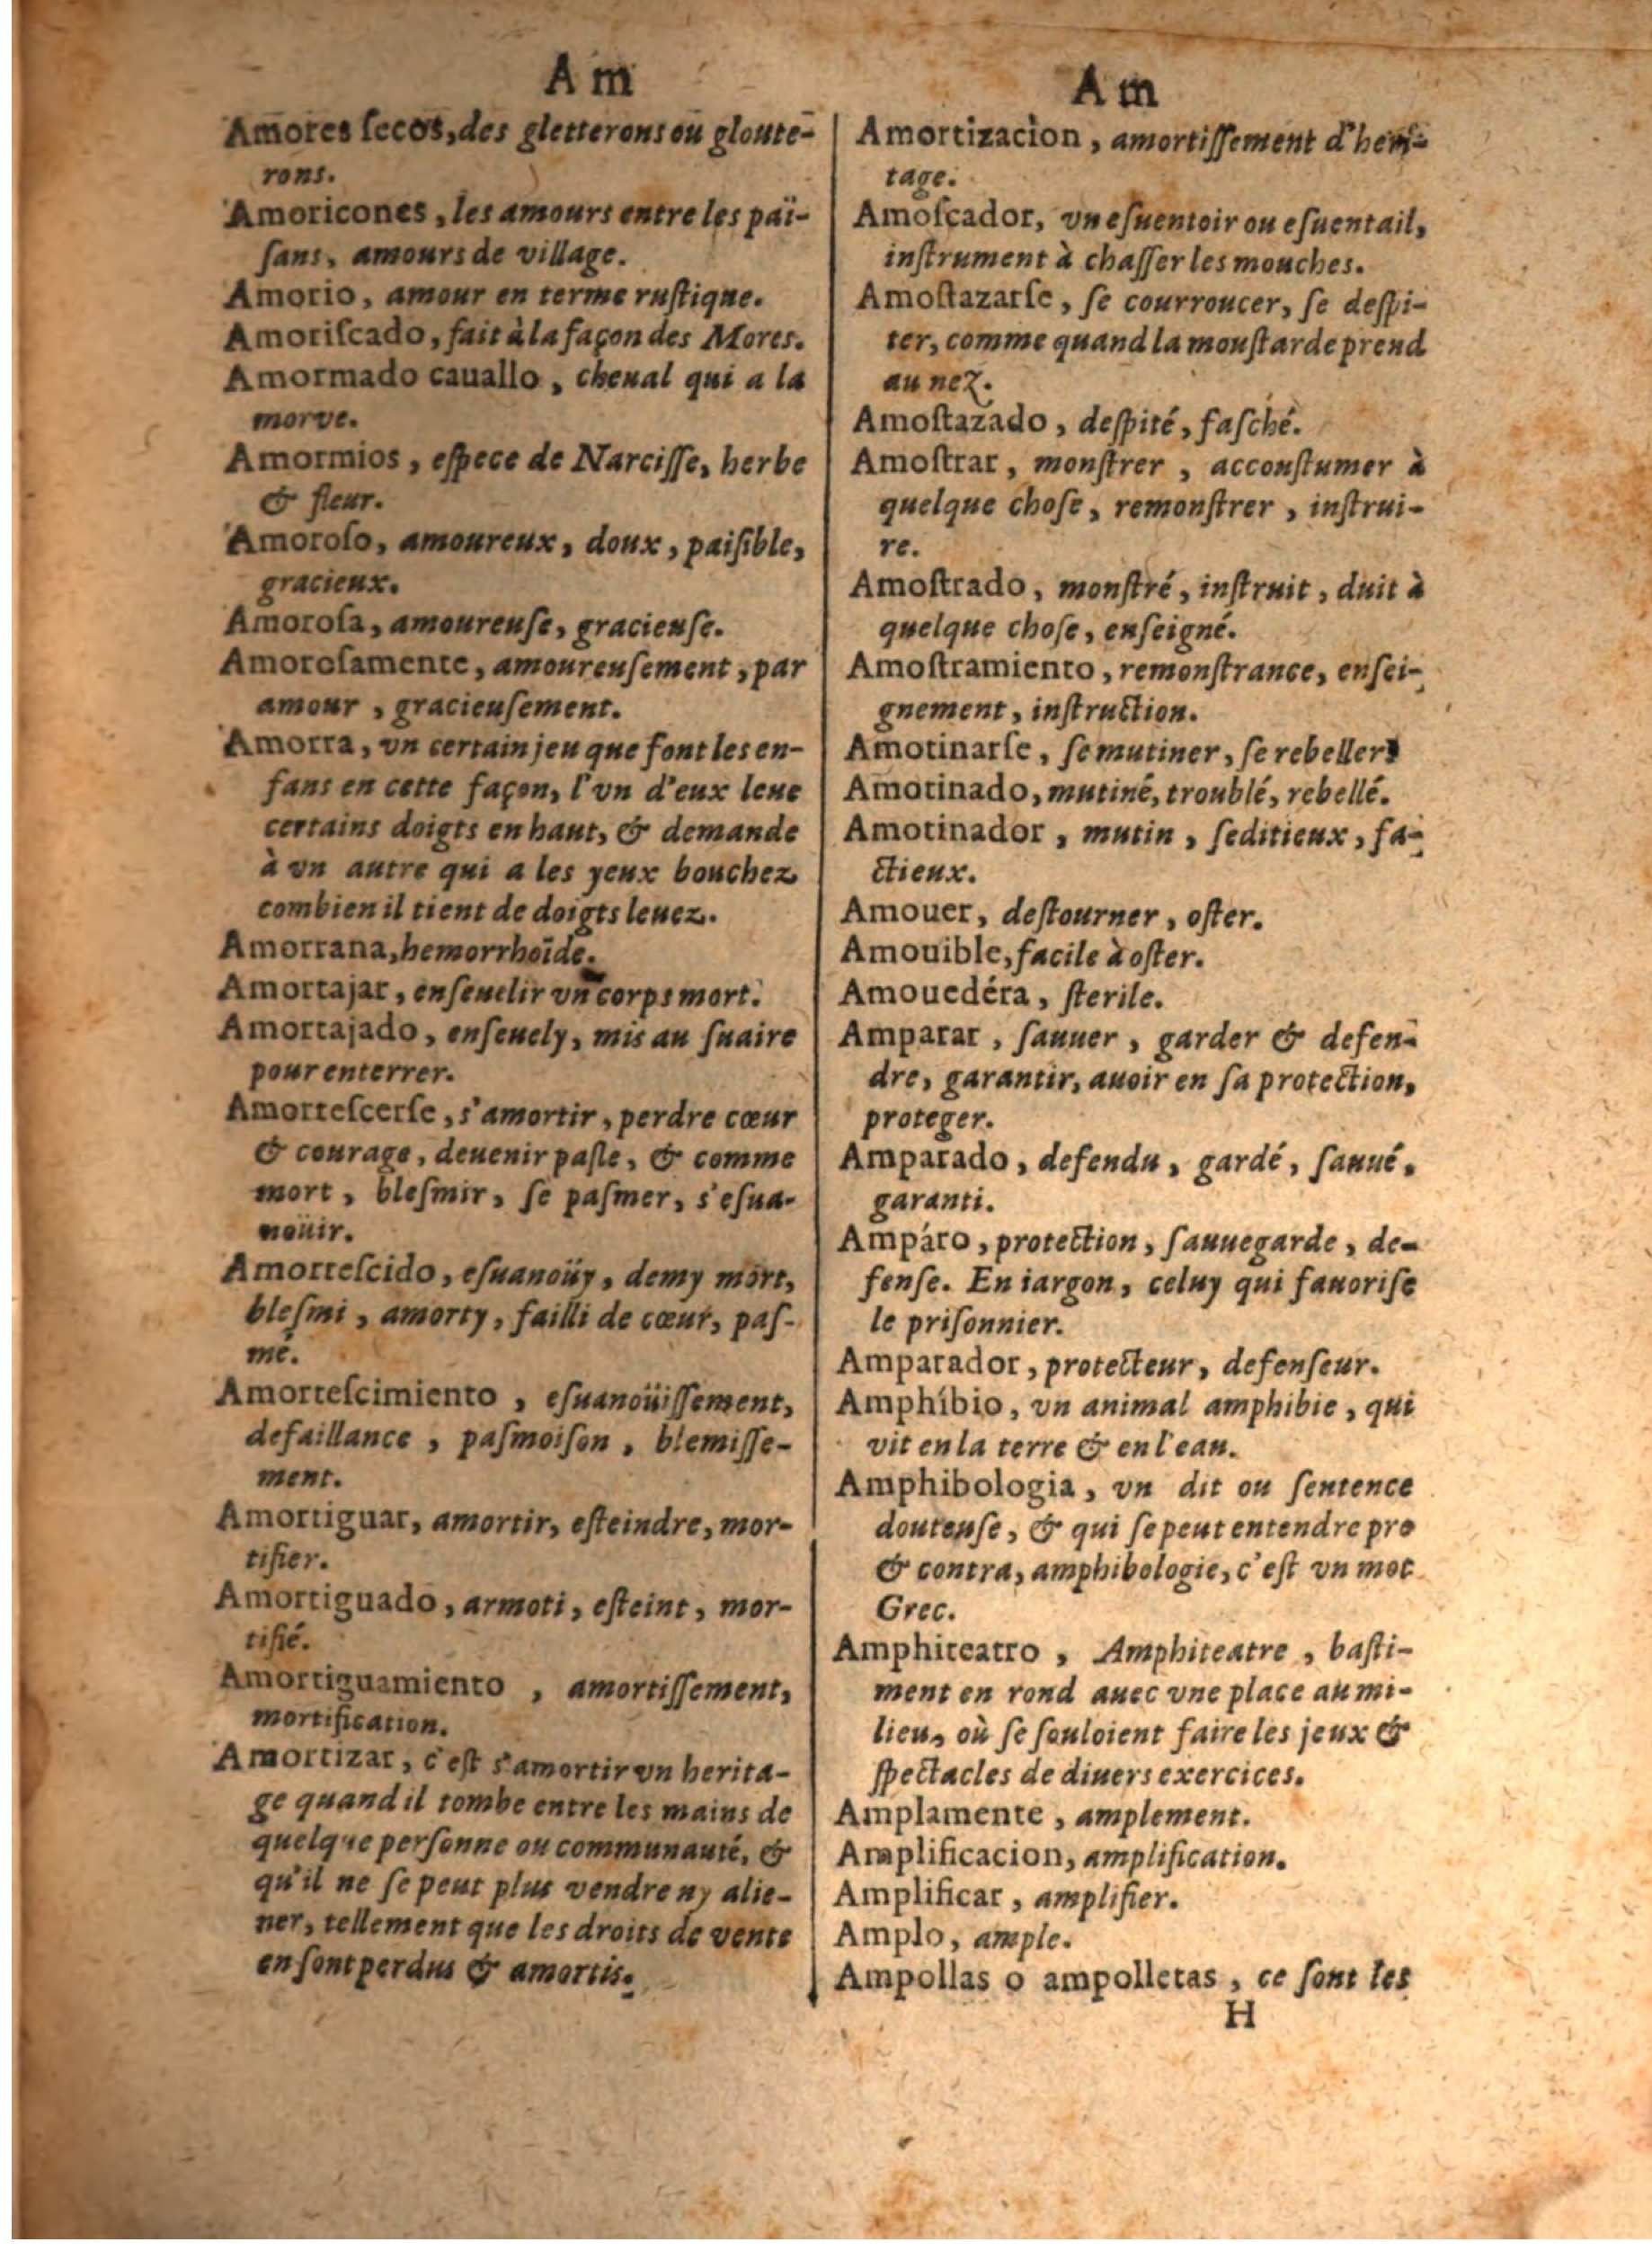 Am
Amores ſecos, des gletterons ou gloute-
rons.
Amoricones, les amours entre les paï-
ſans, amours de village.
Amorio, amour en terme ruſtique.
Amoriſcado, fait à la façon des Mores.
Amormado cauallo, cheual qui a la
morve.
Amormios, eſpece de Narciſſe, herbe
& fleur.
Amoroſo, amoureux, doux, paiſible,
gracieux.
Amoroſa, amoureuſe, gracieuſe.
Amoroſamente, amoureuſement, par
amour, gracieuſement.
Amorra, vn certain jeu que font les en-
fans en cette façon, l'vn d'eux leue
certains doigts en haut, & demande
à vn autre qui a les yeux bouchez
combien il tient de doigts leuez.
Amorrana, hemorrhoïde.
Amortajar, enſeuelir vn corps mort.
Amortajado, enſeuely, mis au ſuaire
pour enterrer.
Amorteſcerſe, s'amortir, perdre cœur
& courage, deuenir paſle, & comme
mort, bleſmir, ſe paſmer, s'eſua-
noüir.
Amorteſcido, eſuanoüy, demy mort,
bleſmi, amorty, failli de cœur, paſ-
mé.
Amorteſcimiento, eſuanoüiſſement,
defaillance, paſmoiſon, blemiſſe-
ment.
Amortiguar, amortir, eſteindre, mor-
tifier.
Amortiguado, armoti, eſteint, mor-
tifié.
Amortiguamiento, amortiſſement,
mortification.
Amortizar, c'eſt s'amortir vn herita-
ge quand il tombe entre les mains de
quelque perſonne ou communauté, &
qu'il ne ſe peut plus vendre ny alie-
ner, tellement que les droits de vente
en ſont perdus & amortis.
Am
Amortizacion, amortiſſement d'heri-
tage.
Amoſcador, vn eſuentoir ou eſuentail,
inſtrument à chaſſer les mouches.
Amoſtazarſe, ſe courroucer, ſe deſpi-
ter, comme quand la mouſtarde prend
au nez.
Amoſtazado, deſpité, faſché.
Amoſtrar, monſtrer, accouſtumer à
quelque choſe, remonſtrer, inſtrui-
re.
Amoſtrado, monſtré, inſtruit, duit à
quelque choſe, enſeigné.
Amoſtramiento, remonſtrance, enſei-
gnement, inſtruction.
Amotinarſe, ſe mutiner, ſe rebeller
Amotinado, mutiné, troublé, rebellé.
Amotinador, mutin, ſeditieux, fa-
ctieux.
Amouer, deſtourner, oſter.
Amouible, facile à oſter.
Amouedéra, ſterile.
Amparar, ſauuer, garder & defen-
dre, garantir, auoir en ſa protection,
proteger.
Amparado, defendu, gardé, ſauué,
garanti.
Ampáro, protection, ſauuegarde, de-
fenſe. En iargon, celuy qui fauoriſe
le priſonnier.
Amparador, protecteur, defenſeur.
Amphíbio, vn animal amphibie, qui
vit en la terre & en l'eau.
Amphibologia, vn dit ou ſentence
douteuſe, & qui ſe peut entendre pro
& contra, amphibologie, c'eſt vn mot
Grec.
Amphiteatro, Amphiteatre, baſti-
ment en rond auec vne place au mi-
lieu, où ſe ſouloient faire les jeux &
ſpectacles de diuers exercices.
Amplamente, amplement.
Amplificacion, amplification.
Amplificar, amplifier.
Amplo, ample.
Ampollas o ampolletas, ce ſont les
H